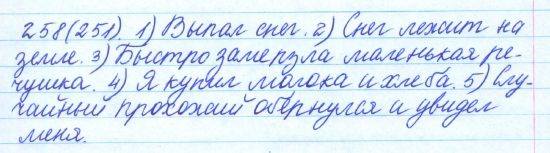 258(251). 1) Выпал снег. 2) Снег лежит на
земле. 3) Быстро замерзла маленькая ре-
чушка. 4) Я купил молока и хлеба. 5) Слу-
чайный прохожий обернулся и увидел
меня.